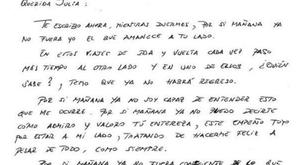 QUERIDA JULIA:
TE ESCRIBO AHORA, MIENTRAS DUERMES, POR SI MAÑANA YA
NO FUERA YO EL QUE AMANECE A TU LADO.
EN ESTOS VIAJES DE IDA Y VUELTA CADA VEZ PASO
MÁS TIEMPO AL OTRO LADO Y EN UNO DE ELLOS, ¿QUIÉN
SABE?, TEMO QUE YA NO HABRÁ REGRESO.
POR SI MAÑANA YA NO SOY CAPAZ DE ENTENDER ESTO
QUE ME OCURRE. POR SI MAÑANA YA NO PUEDO DECIRTE
CÓMO ADMIRO Y VALORO TU ENTEREZA, ESTE EMPEÑO TUYO
POR ESTAR A MI LADO, TRATANDO DE HACERME FELIZ A
PESAR DE TODO, COMO SIEMPRE.
POR SI MAÑANA YA NO FUERA CONSCIENTE DE LO QUE